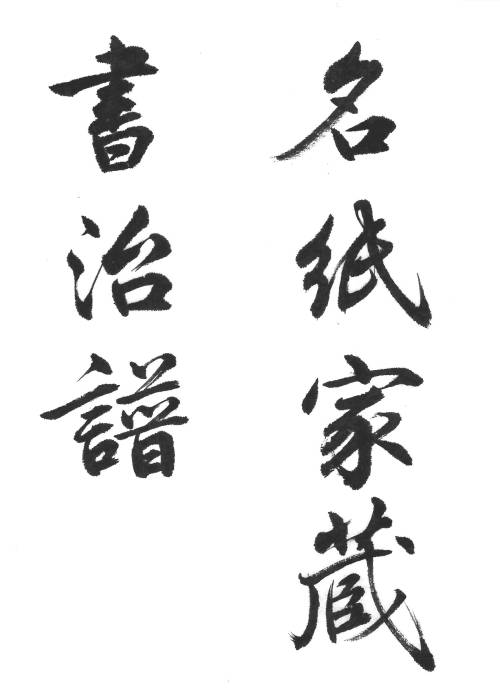 名紙家蔵
書治譜